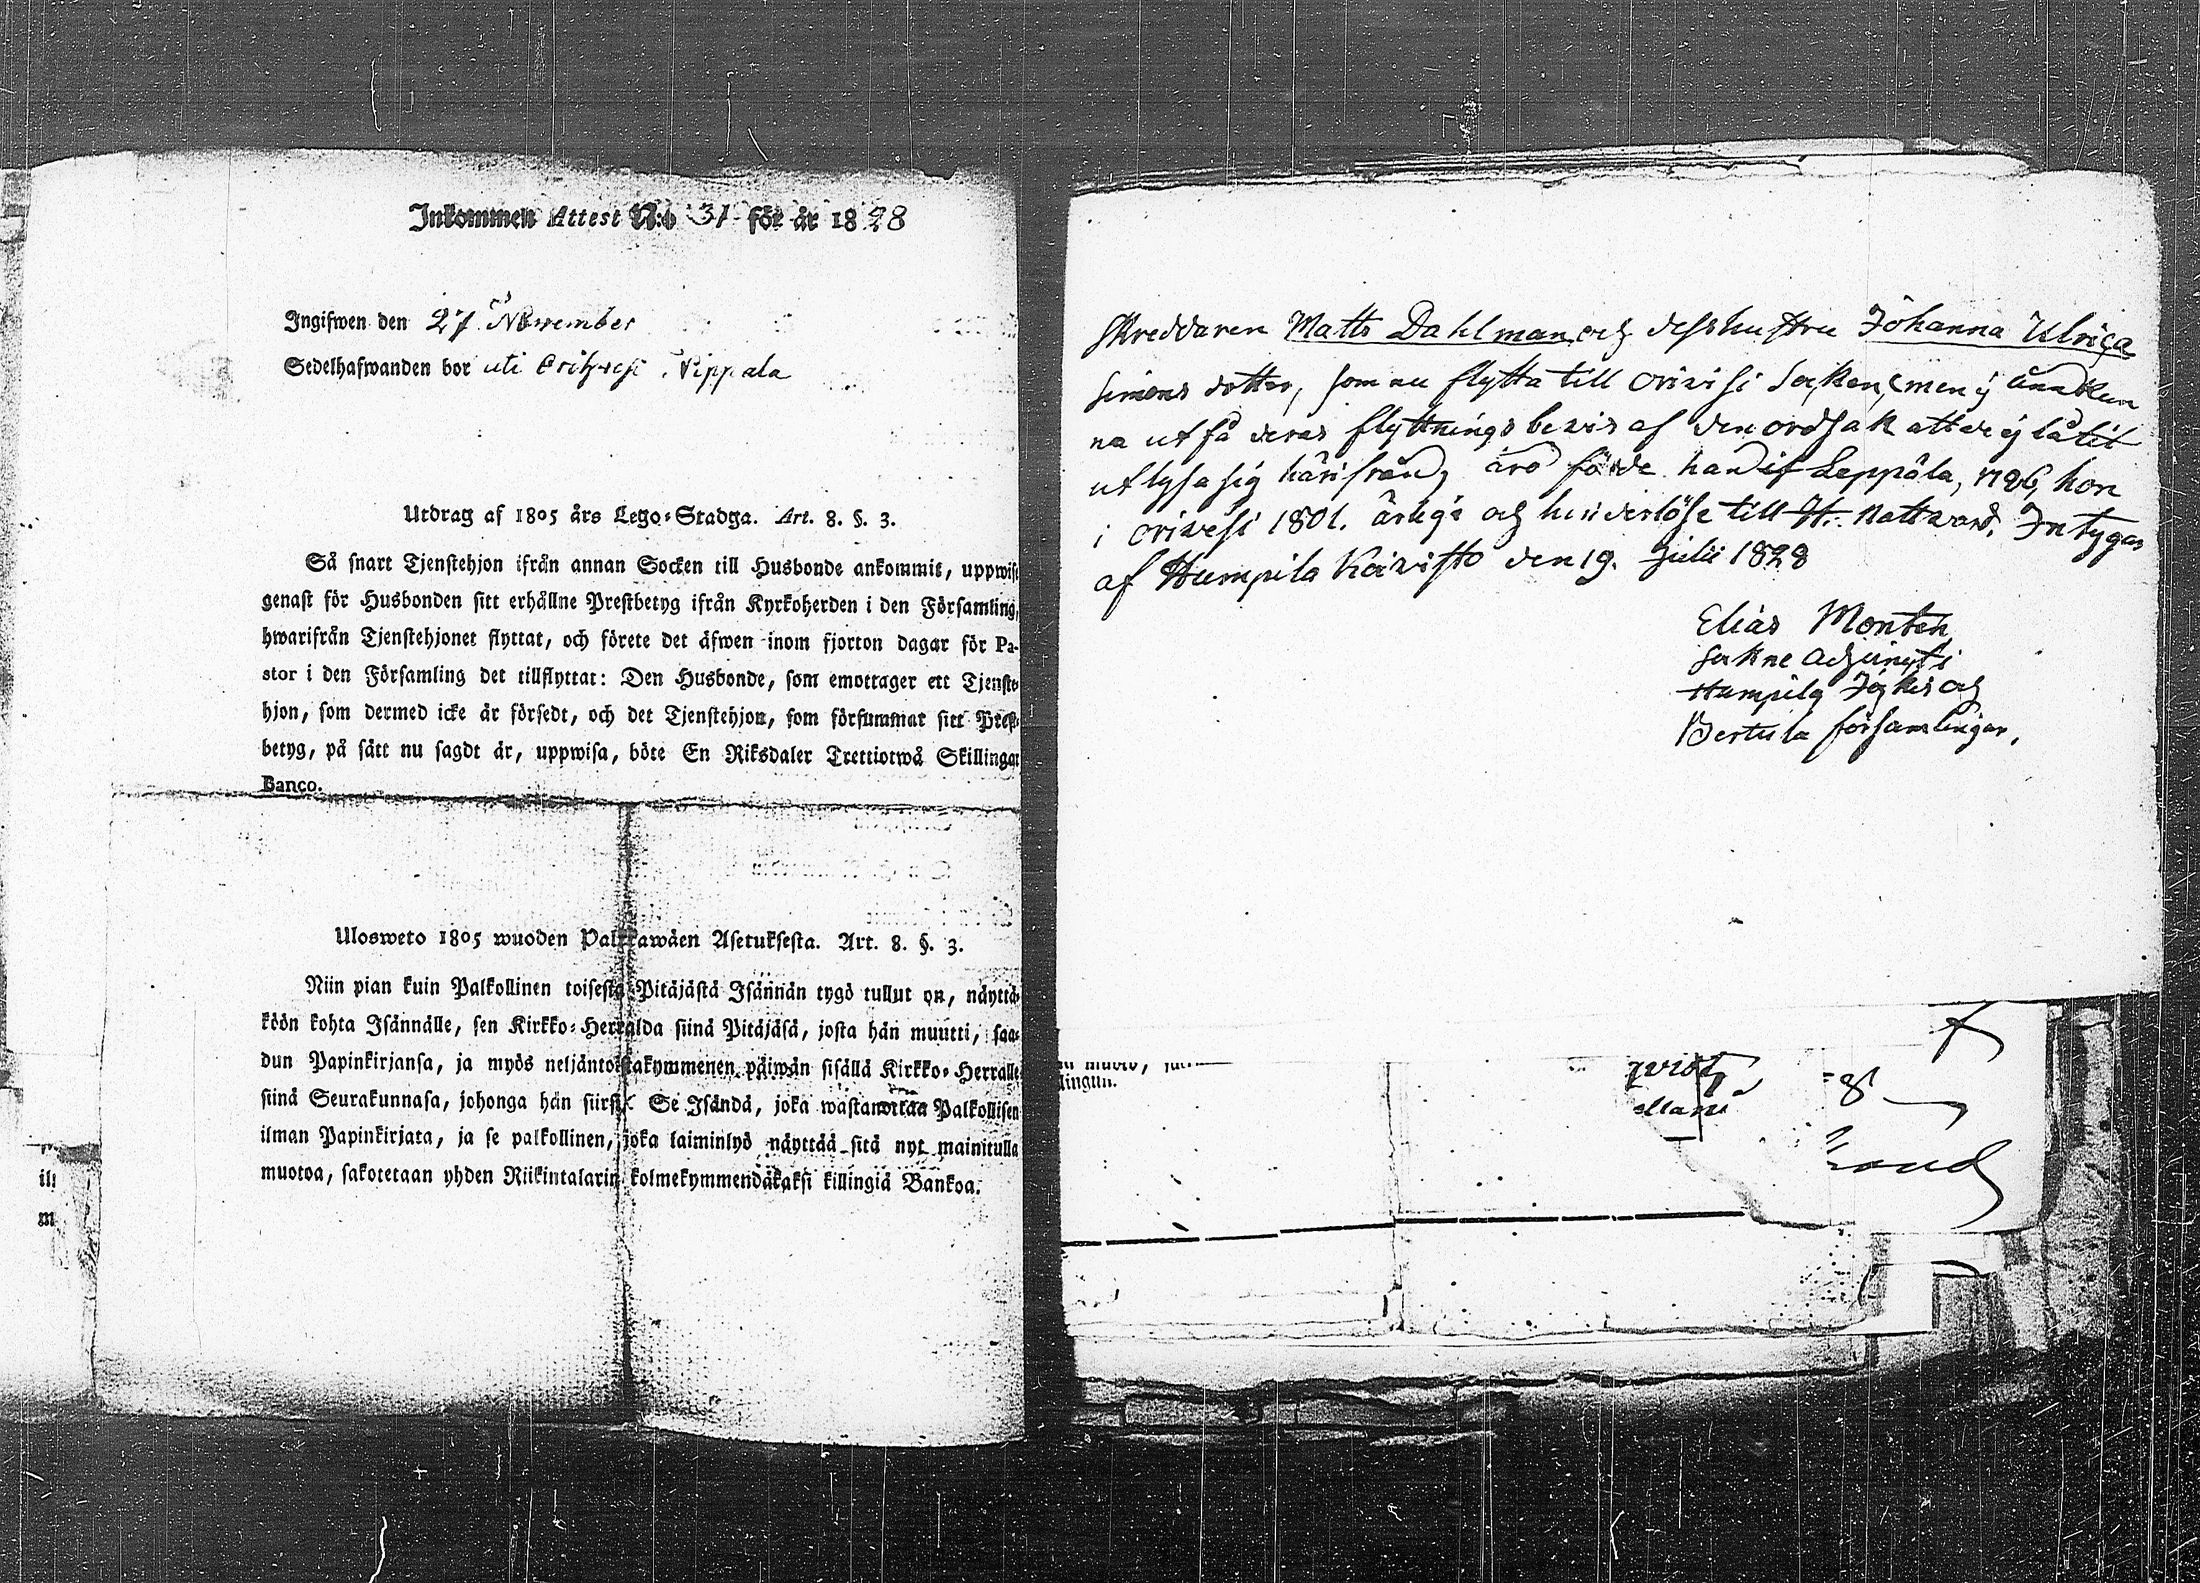 Inkommen Attest N:o 31 för år 1828
Ingifwen den 27 November
Sedelhafwanden bor uti Orihvesi Pippala
Utdrag af 1805 års Lego-Stadga. Art. 8. §. 3.
Så snart Tjenstehjon ifrån annan Socken till Husbonde ankommit, uppwise
genast för Husbonden sitt erhållne Prestbetyg ifrån Kyrkoherden i den Församling,
hwarifrån Tjenstehjonet flyttat, och förete det äfwen inom fjorton dagar för Pa-
stor i den Församling det tillflyttat: Den Husbonde, som emottager ett Tjenste-
hjon, som dermed icke är försedt, och det Tjenstehjon, som försummar sitt Prest-
betyg, på sätt nu sagdt är, uppwisa, böte En Riksdaler Trettiotwå Skillingar
Banco.
Ulosweto 1805 wuoden Palkkawäen Asetuksesta. Art. 8. §. 3.
Niin pian kuin Palkollinen toisesta Pitäjästä Isännän tygö tullut on, näyttä-
köön kohta Isännälle, sen Kirkko-Herralda siinä Pitäjäsä, josta hän muutti, saa-
dun Papinkirjansa, ja myös neljäntoistakymmenen päiwän sisällä Kirkko-Herralle
siinä Seurakunnasa, johonga hän siirsi: Se Isändä, joka wastanottaa Palkollisen
ilman Papinkirjata, ja se palkollinen, joka laiminlyö näyttää sitä nyt mainitulla
muotoa, sakotetaan yhden Riikintalarin kolmekymmendäkaksi killingiä Bankoa.
Skreddaren Matts Dahlman och dess hustru Johanna Ulrica
Simons dotter, som nu flytta till Orivesi Socken, men ej ännu kun
na utfå deras flyttnings bevis af den ordsak att de ej låtit
utlysa sig härifrån, äro födde han i Leppäla, 1796, hon
i Orivesi 1801. ärlige och hinderlöse till H. Nattvard. Intygas
af Humpila Koivisto den 19. Julii 1828
Elias Montén
Sokne Adjunct i
Humpila Jockis och
Bertula församlingar.